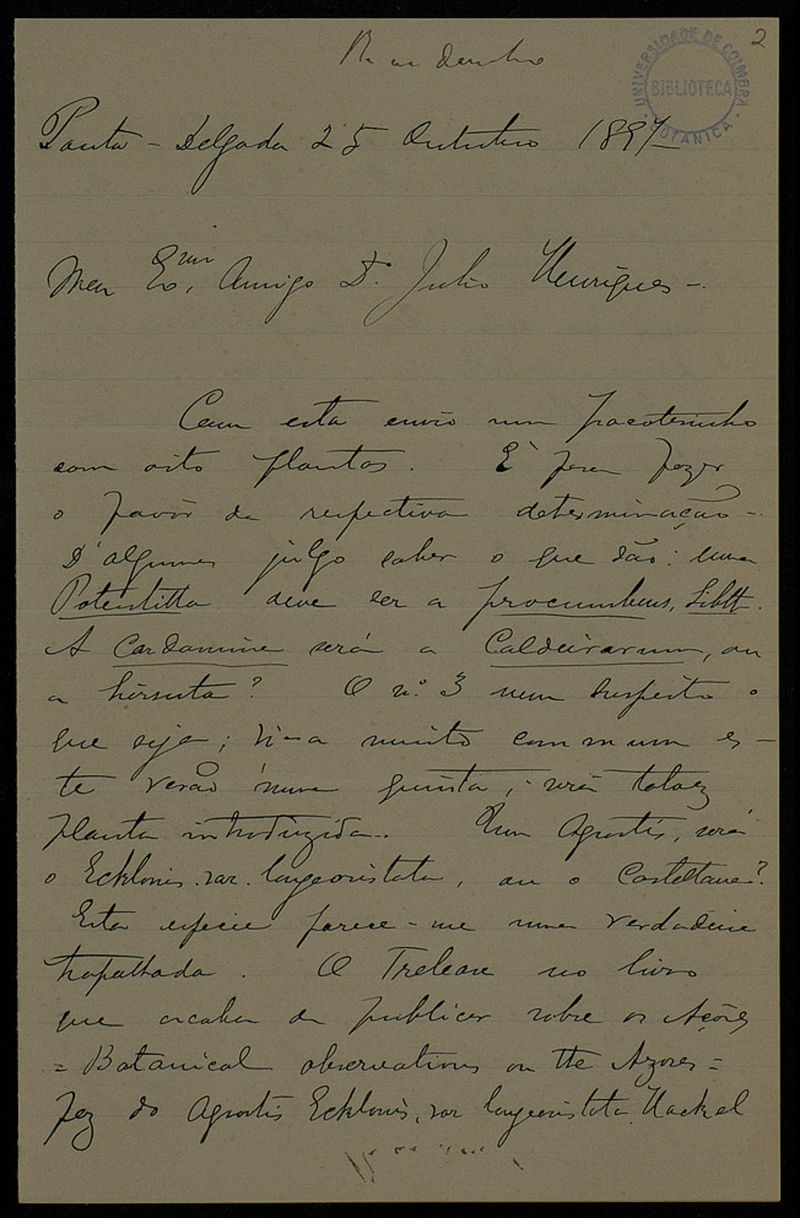 2
UNIVERSIDADE DE COIMBRA
BIBLIOTECA
BOTANICA
Ponta-Delgada 25 Outubro 1897
Meu Exmo. Amigo Dr. Julio Henriques -.
Com esta envio um pacotesinho
com oito plantas. É para fazer
o favôr da respectiva determinação -.
D'algumas julgo saber o que são: uma
Potentilla deve ser a procumbens, Sibth.
A Cardamine será a Caldeirarum, ou
a hirsuta? O n.º 3 nem suspeito o
que seja; vi-a muito commum es-
te verão n'uma quinta, será talvez
planta introduzida. Um Agrostis, será
o Ecklonis var. longearistata, ou o Castellana?
Esta especie parece-me uma verdadeira
trapalhada. O Trelease no livro
que acaba de publicar sobre os Açôres
= Botanical observations on the Azores =
fez do Agrostis Ecklonis, var longearistata Hackel